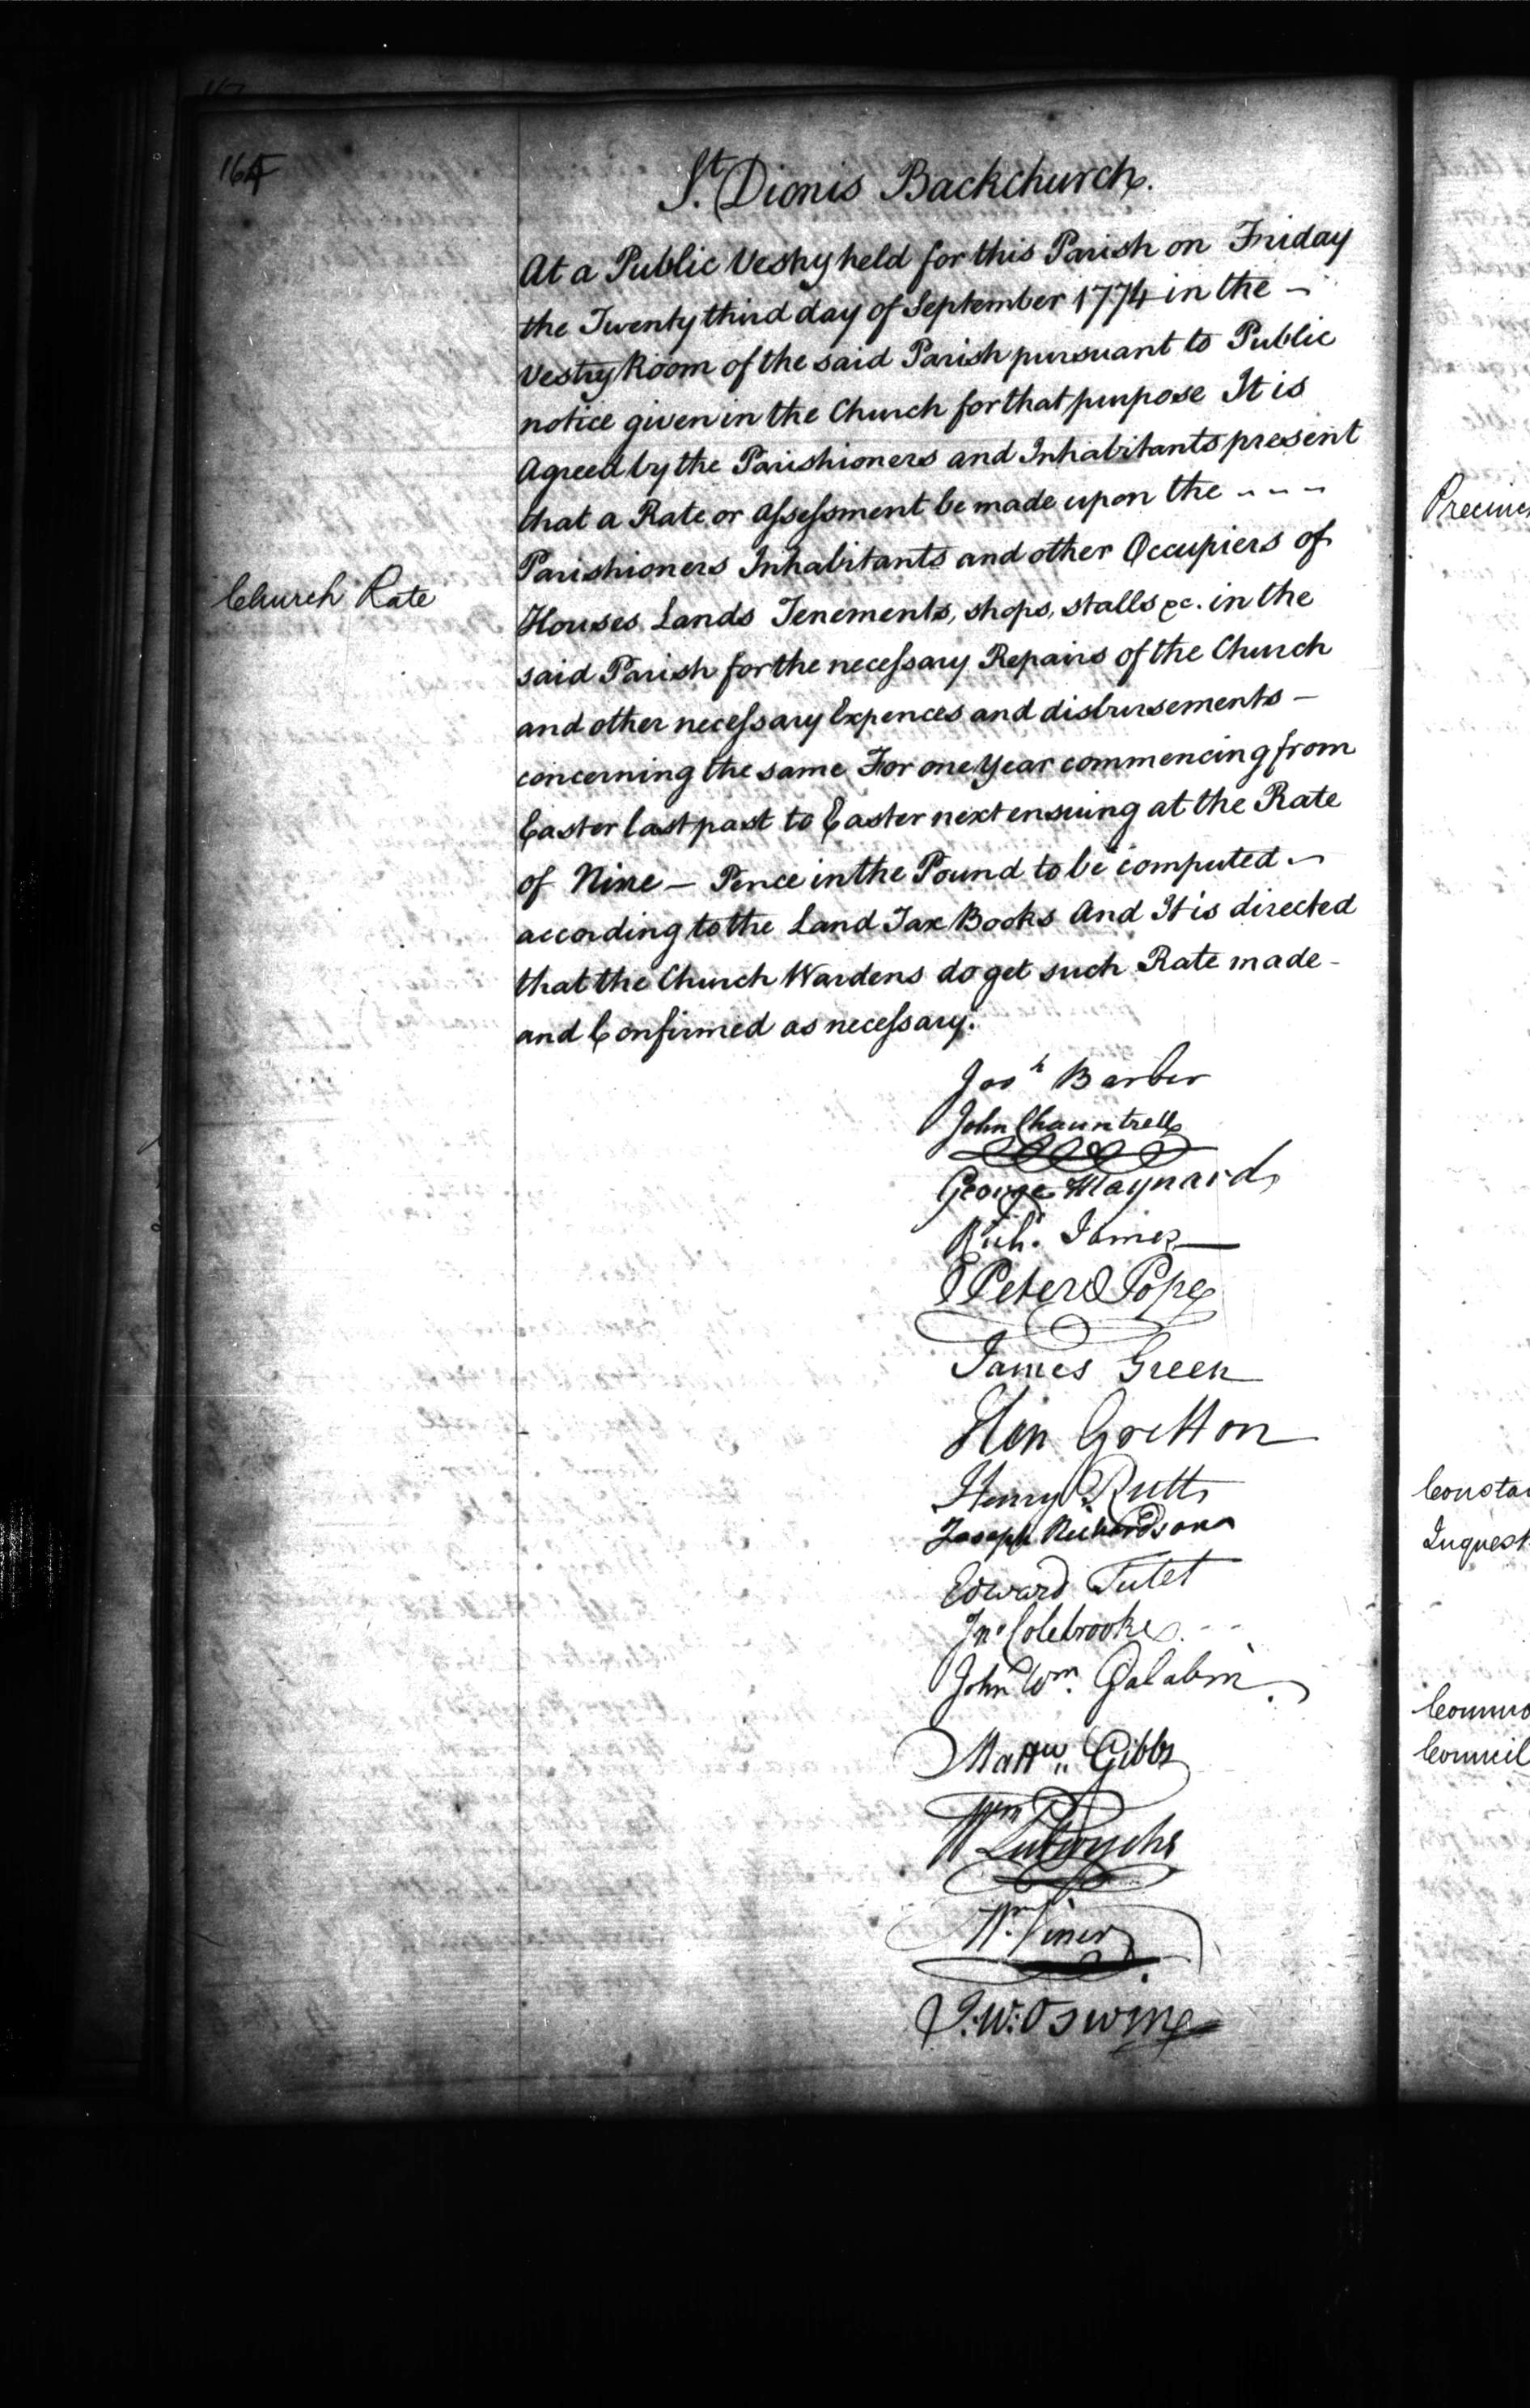 164
St. Dionis Backchurch.
At a Public Vestry held for this Parish on Friday
the Twenty third day of September 1774 in the -
Vestry Room of the said Parish pursuant to Public
notice given in the Church for that purpose It is
Agreed by the Parishioners and Inhabitants present
that a Rate or Assessment be made upon the - - -
Parishioners Inhabitants and other Occupiers of
Church Rate
Houses Lands Tenements, shops, stalls &c. in the
said Parish for the necessary Repairs of the Church
and other necessary Expences and disbursements -
concerning the same For one Year commencing from
Easter last past to Easter next ensuing at the Rate
of Nine - Pence in the Pound to be computed -
according to the Land Tax Books And It is directed
that the Church Wardens do get such Rate made -
and Confirmed as necessary.
Josh Barber
John Chauntrell
George Maynard
Richd. James
Peter Pope
James Green
Hen Gretton
Henry Rutt
Joseph Richardson
Edward Tutet
Jno Colebrooke
John Wm. Galabin
Mattw. Gibbs
Wm Lutwyche
Wm. Viner
J: W: Oswin
Precinct
Consta
Inquest
Commo
Council